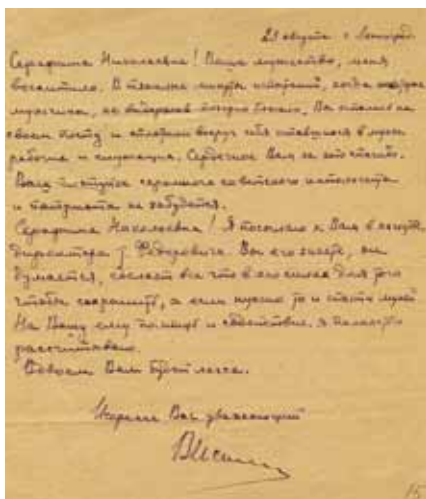 23 августа г. Ленинград.
Серафима Николаевна! Ваше мужество, меня
восхитило. В тяжелые минуты испытаний, когда
мужчины, не выдержав позорно бежали, Вы остались на
своем посту и сплотили вокруг себя оставшихся в музее
рабочих и служащих. Сердечное Вам за это спасибо.
Ваш поступок скромного советского
и патриота не забудется.
Серафима Николаевна! Я посылаю к Вам в
директора т. Федоровича. Вы его знаете, он
думается, сделает все что в его силах для того
чтобы сохранить, а если нужно то и спасти музей
На Вашу ему помощь и содействие я полностью
рассчитываю.
Вдвоем Вам будет легче.
Искренне Вас уважающий
15